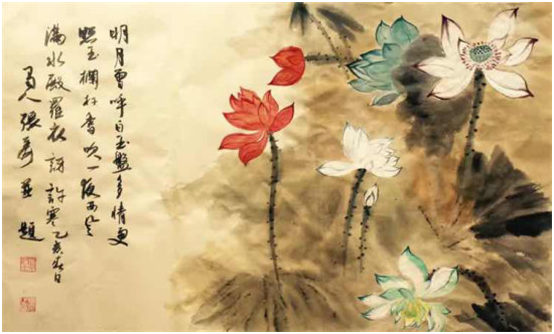 明月曾呼白玉盤多情更
照玉欄杆香吹一夜西風
滿水殿羅衣訝許寒乙亥春日
人張並題